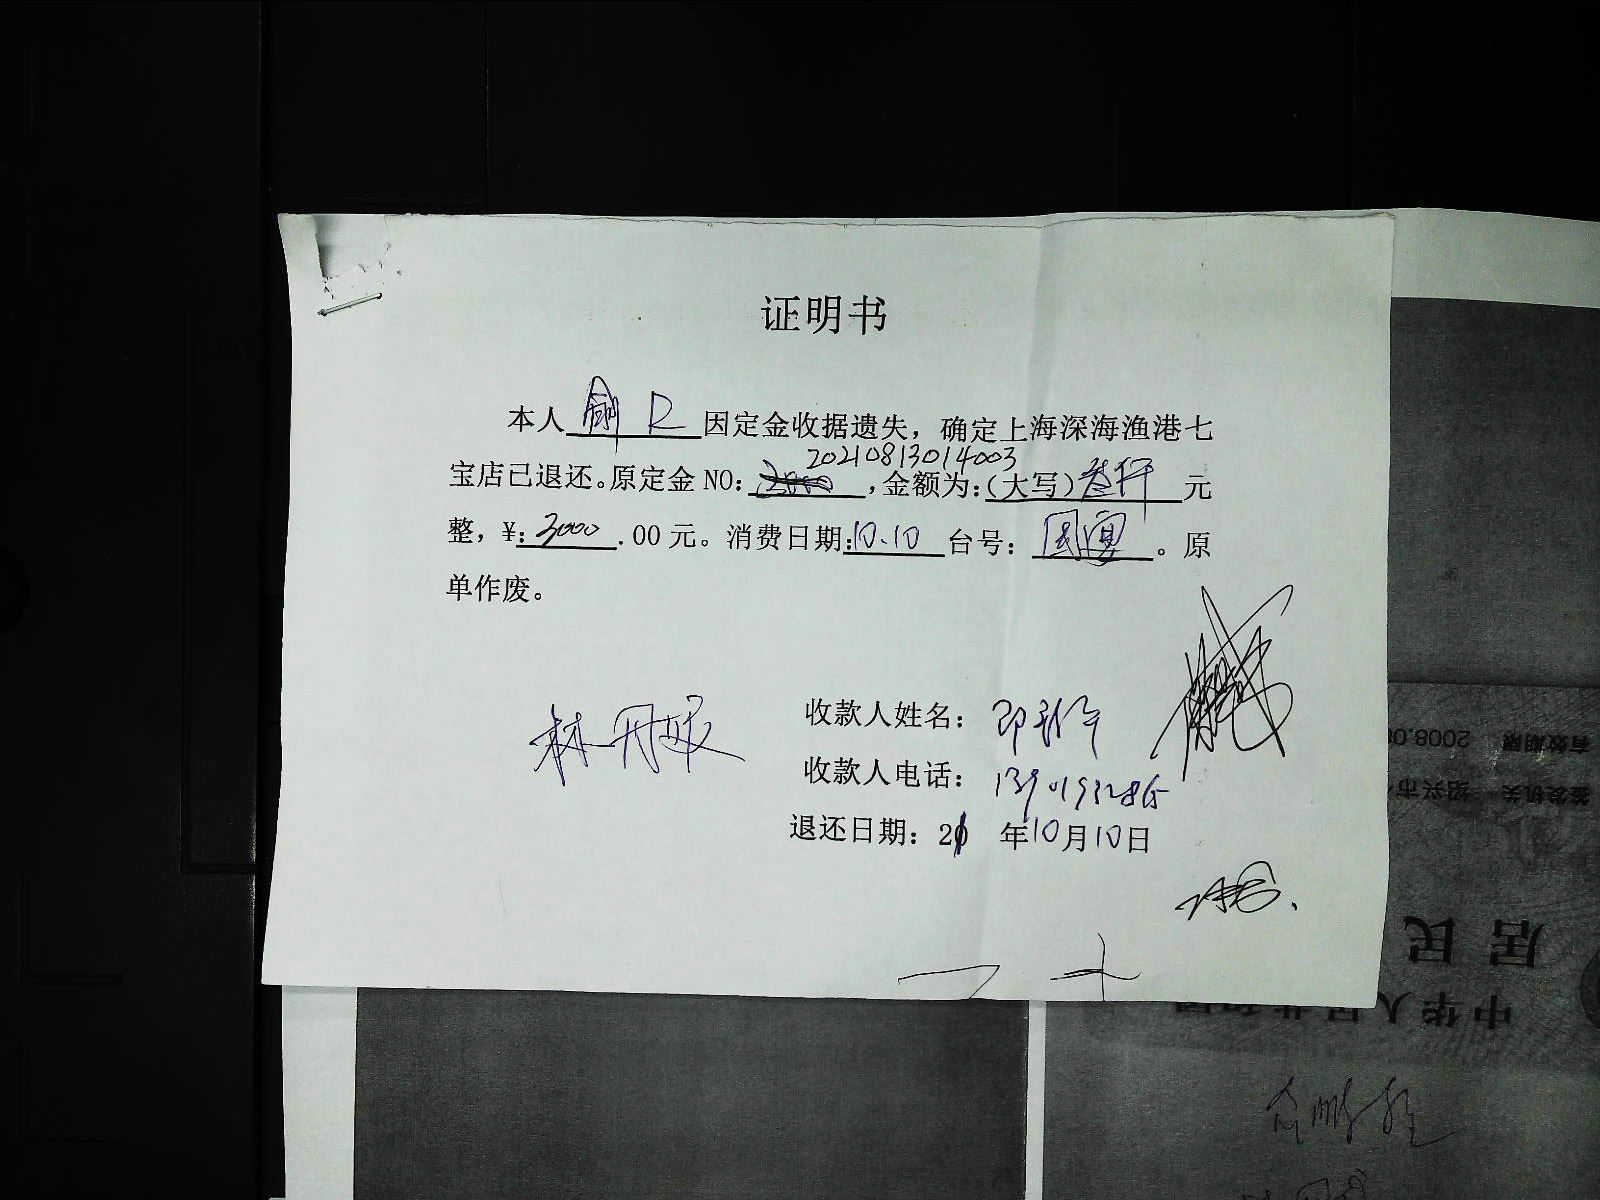 证明书
本人 俞 R 因定金收据遗失，确定上海深海渔港七
20210813014003
宝店已退还。原定金 NO: ，金额为:(大写) 叁仟 元
整，¥: 3000 .00 元。消费日期: 10.10 台号: 国宴 。原
单作废。
林丹
收款人姓名:
收款人电话:
退还日期: 21 年 10 月 10 日
有效期限 2008.08
签发机关 绍兴市
居民
中华人民共和国